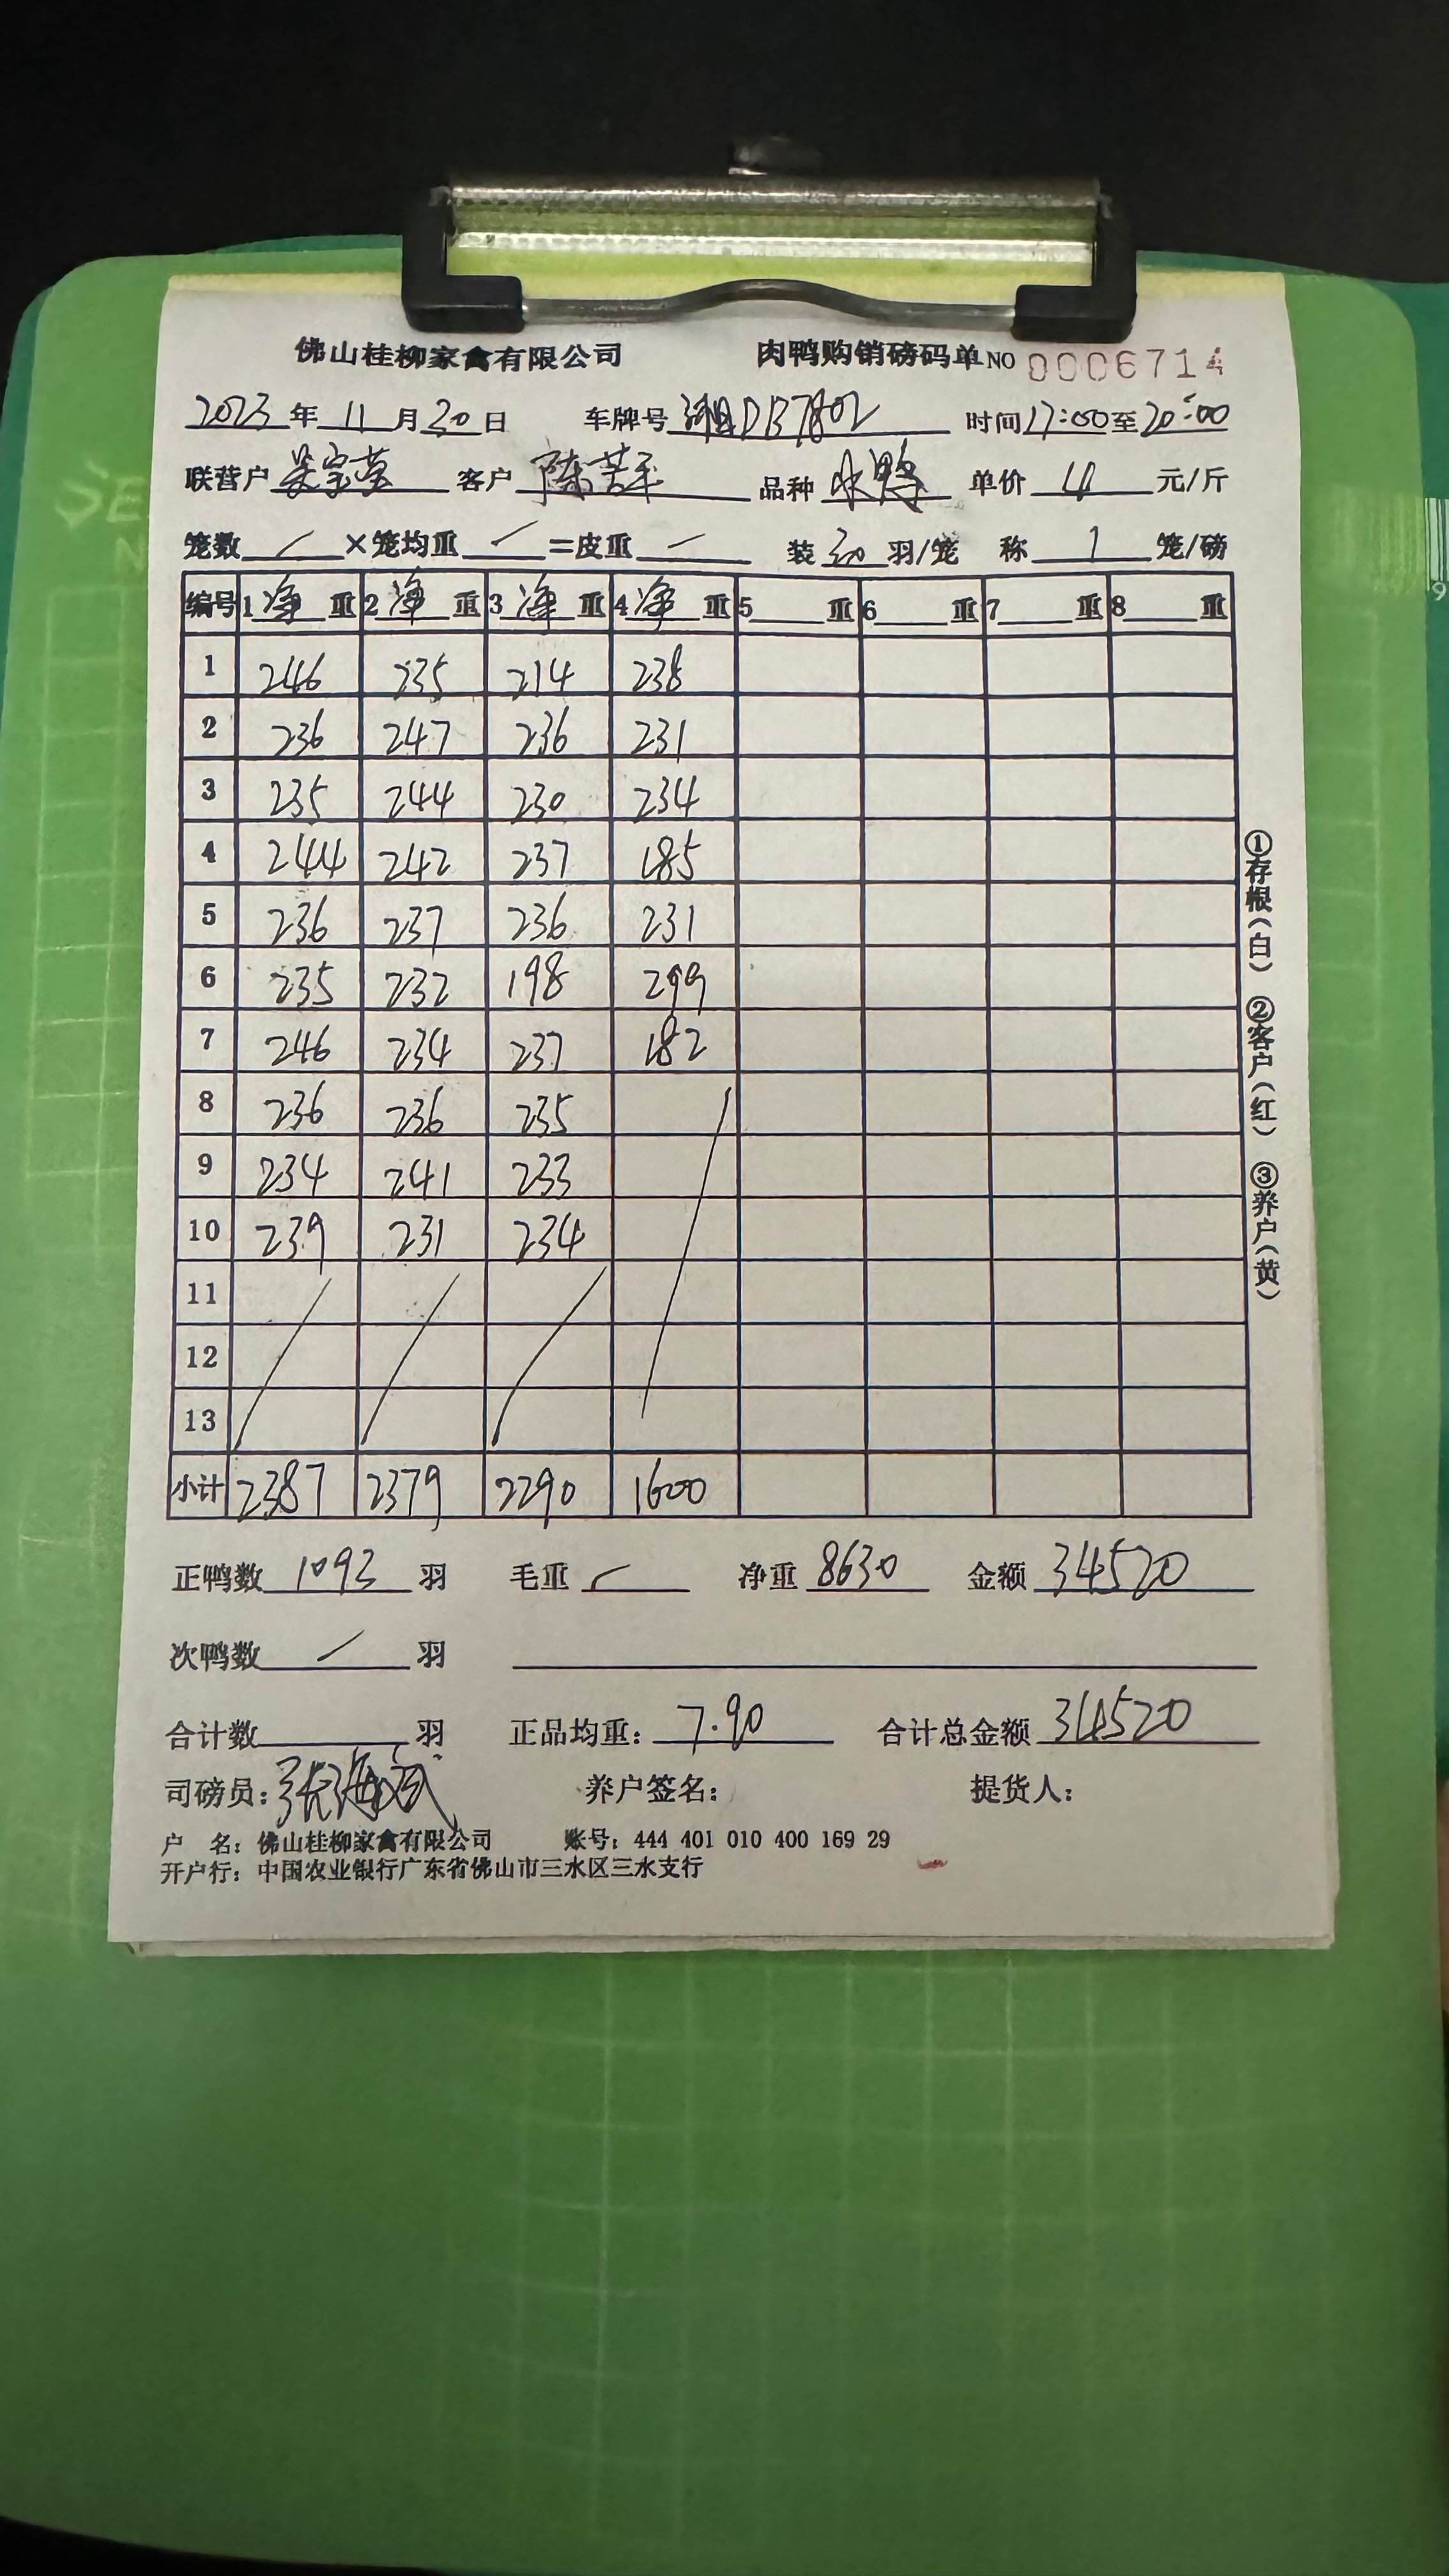 佛山桂柳家禽有限公司 肉鸭购销磅码单 NO 0006714
2023年11月30日 车牌号 湘DB7802 时间17:00至20:00
联营户 客户 陈苦平 品种 水鸭 单价 4 元/斤
笼数 / ×笼均重 / =皮重 / 装 30 羽/笼 称 1 笼/磅
编号 1净重 2净重 3净重 4净重 5重 6重 7重 8重
1 246 235 214 238
2 236 247 236 231
3 235 244 230 234
4 244 242 237 185
5 236 237 236 231
6 235 232 198 299
7 246 234 237 182
8 236 236 235
9 234 241 233
10 239 231 234
11
12
13
小计 2387 2379 2290 1600
正鸭数 1093 羽 毛重 / 净重 8630 金额 34520
次鸭数 / 羽
合计数 羽 正品均重: 7.90 合计总金额 34520
司磅员: 养户签名: 提货人:
户 名: 佛山桂柳家禽有限公司 账号: 444 401 010 400 169 29
开户行: 中国农业银行广东省佛山市三水区三水支行
①存根(白) ②客户(红) ③养户(黄)